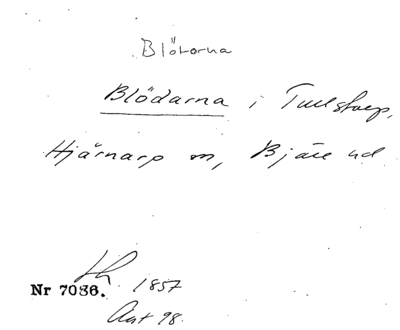 Blötorna
Blödarna i Tullstorp,
Hjärnarp sn, Bjäre hd
Lh 1857
Nr 7086.
Avt 98.